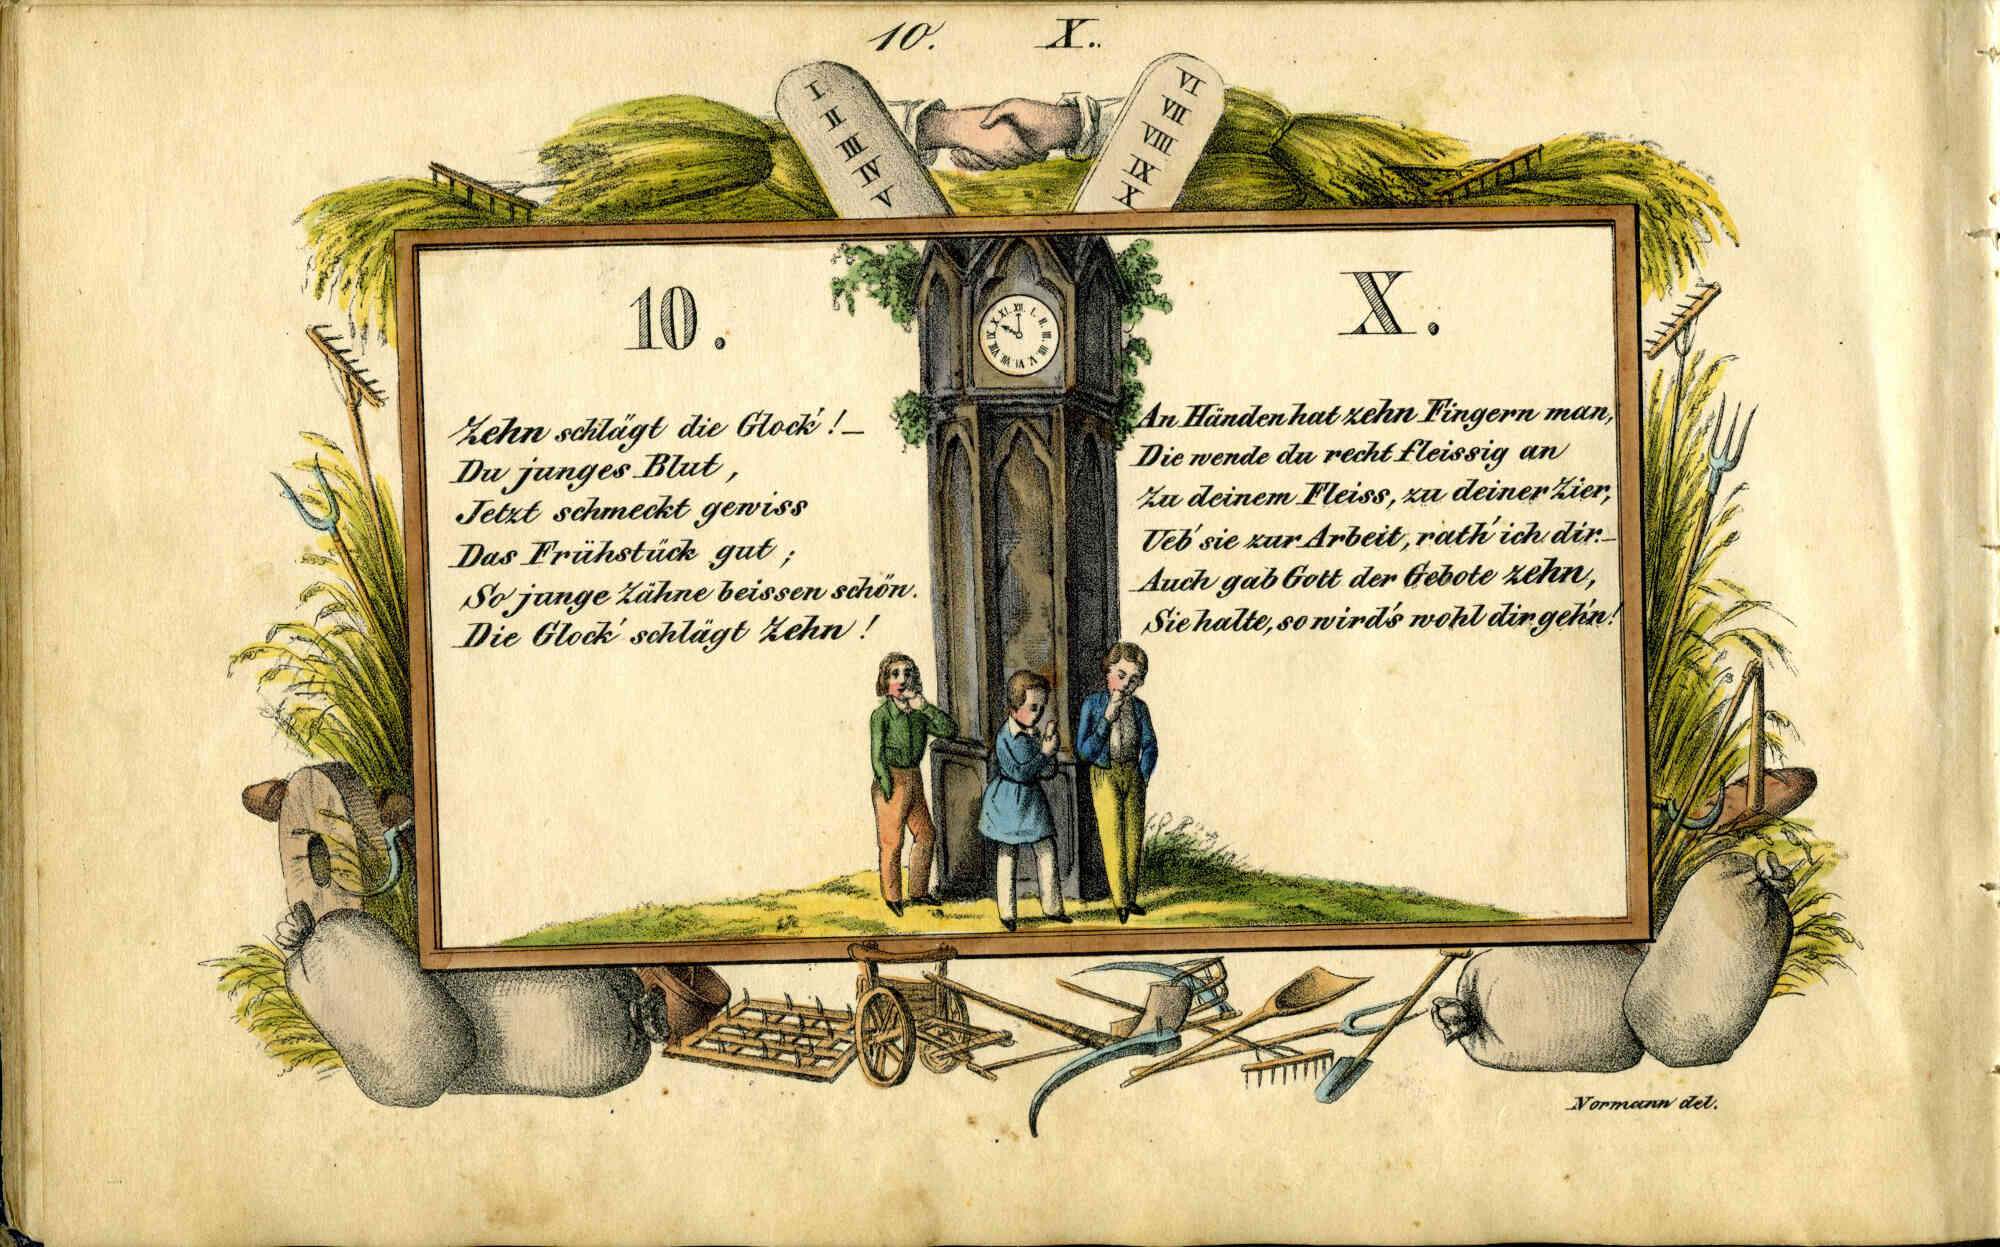 10. X.
I
II
III
IV
V
VI
VII
VIII
IX
X
10.
Zehn schlägt die Glock'! –
Du junges Blut,
Jetzt schmeckt gewiss
Das Frühstück gut;
So junge Zähne beissen schön.
Die Glock' schlägt Zehn!
XII. I. II. III. IIII. V. VI. VII. VIII. IX. X. XI.
X.
An Händen hat zehn Fingern man,
Die wende du recht fleissig an
Zu deinem Fleiss, zu deiner Zier,
Ueb' sie zur Arbeit, rath' ich dir. –
Auch gab Gott der Gebote zehn,
Sie halte, so wird's wohl dir geh'n!
Normann del.